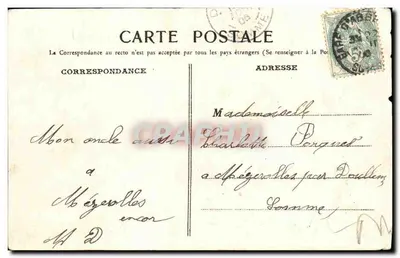 CARTE POSTALE
La Correspondance au recto n'est pas acceptée par tous les pays étrangers (Se renseigner à la Po
CORRESPONDANCE
ADRESSE
Mademoiselle
Charlotte
a Mézerolles par Doullens
Somme
Mon oncle aussi
a
Mézerolles
encor
M D